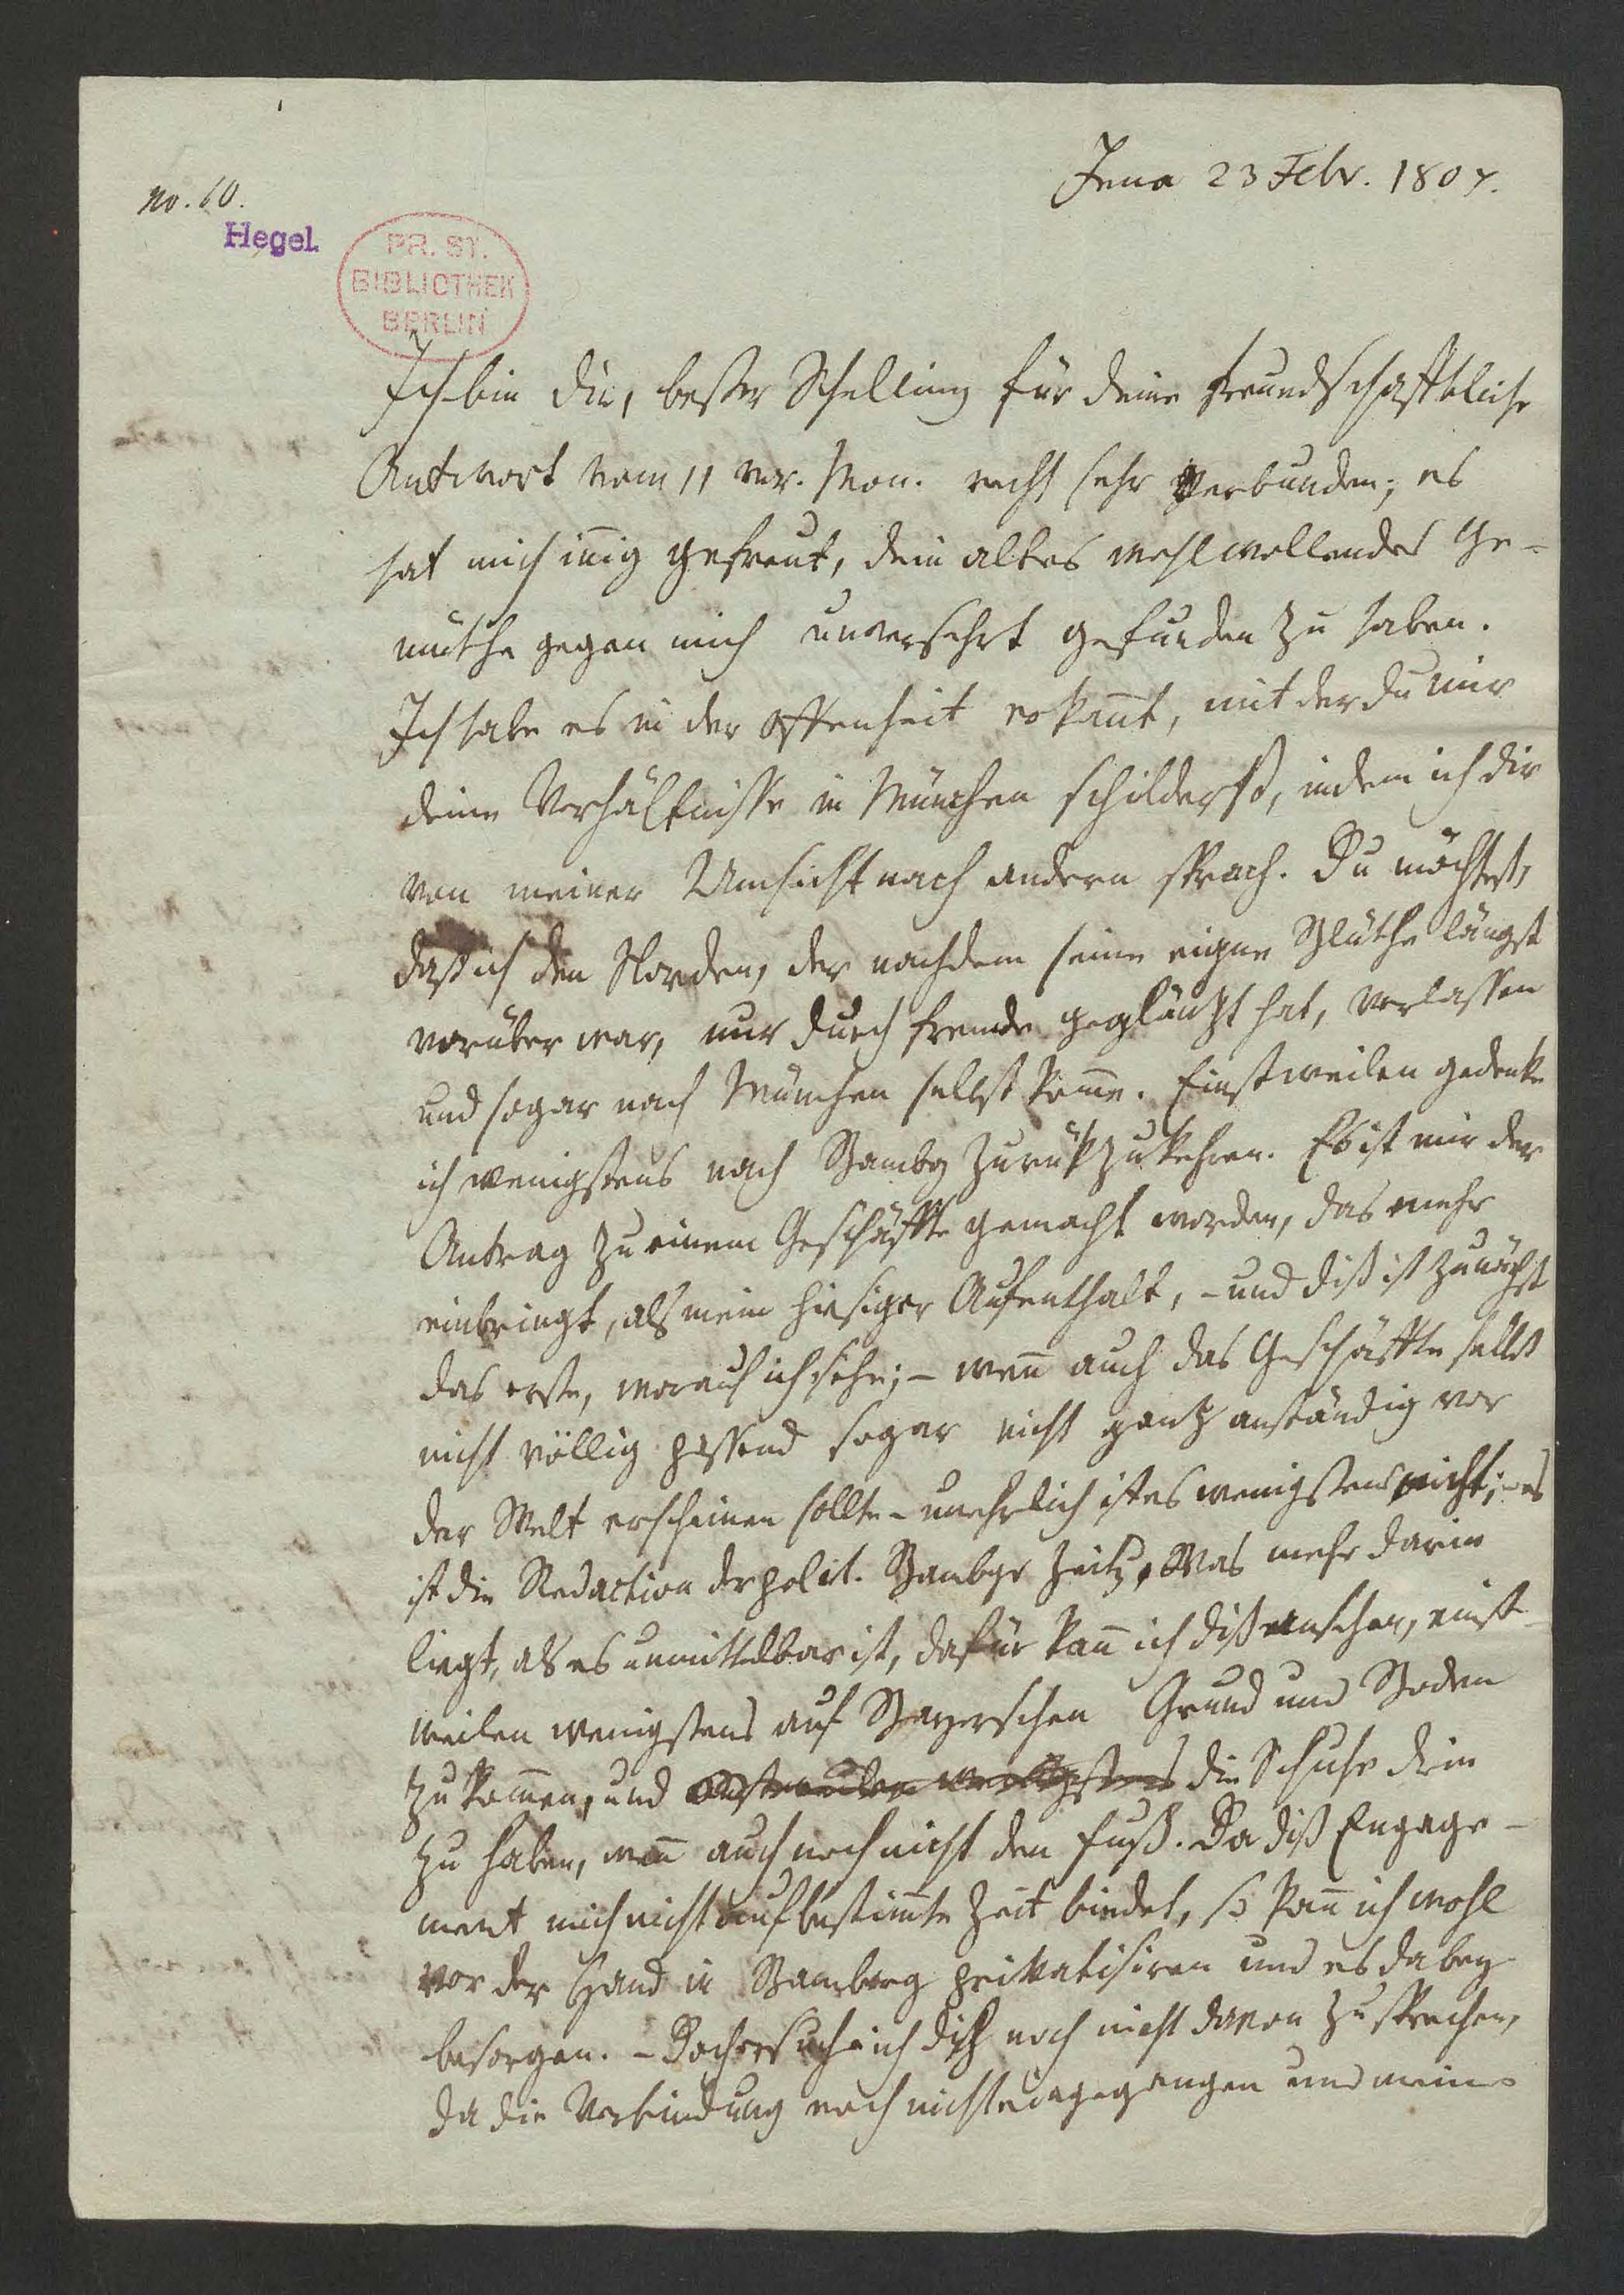 Jena 23 Febr. 1807.
No. 60.
Hegel.
PR. ST.
BIBLIOTHEK
BERLIN
Ich bin dir, bester Schelling für deine freundschafftliche
Antwort vom 11 vor. Mon. recht sehr verbunden; es
hat mich iñig gefreut, dein altes wohlwollendes Ge-
müthe gegen mich unversehrt gefunden zu haben.
Ich habe es in der Offenheit erkañt, mit der du mir
deine Verhältnisse in München schilderst, indem ich dir
von meiner Umsicht nach andern sprach. Du möchtest,
daß ich den Norden, der nachdem seine eigne Blüthe längst
vorüber war, nur durch fremde geglänzt hat, verlassen
und sogar nach München selbst kom̃e. Einstweilen gedenke
ich wenigstens nach Bambg zurükzukehren. Es ist mir der
Antrag zu einem Geschäffte gemacht worden, das mehr
einbringt, als mein hiesiger Aufenthalt, - und diß ist zunächst
das erste, worauf ich sehe; - weñ auch das Geschäffte selbst
nicht völlig passend sogar nicht ganz anständig vor
der Welt erscheinen sollte - unehrlich ist es wenigstens nicht; - es
ist die Redaction der polit. Bambgr Zeitg. Was mehr darin
liegt, als es unmittelbar ist, dafür kañ ich diß ansehen, einst-
weilen wenigstens auf Bayerschen Grund und Boden
zu kom̃en, und die Schuhe drin
zu haben, weñ auch noch nicht den Fuß. Da diß Engage-
ment mich nicht auf bestim̃te Zeit bindet, so kañ ich wohl
vor der Hand in Bamberg privatisiren und es dabey
besorgen. - Doch ersuche ich dich noch nicht davon zu sprechen,
da die Verbindung noch nicht eingegangen und meine